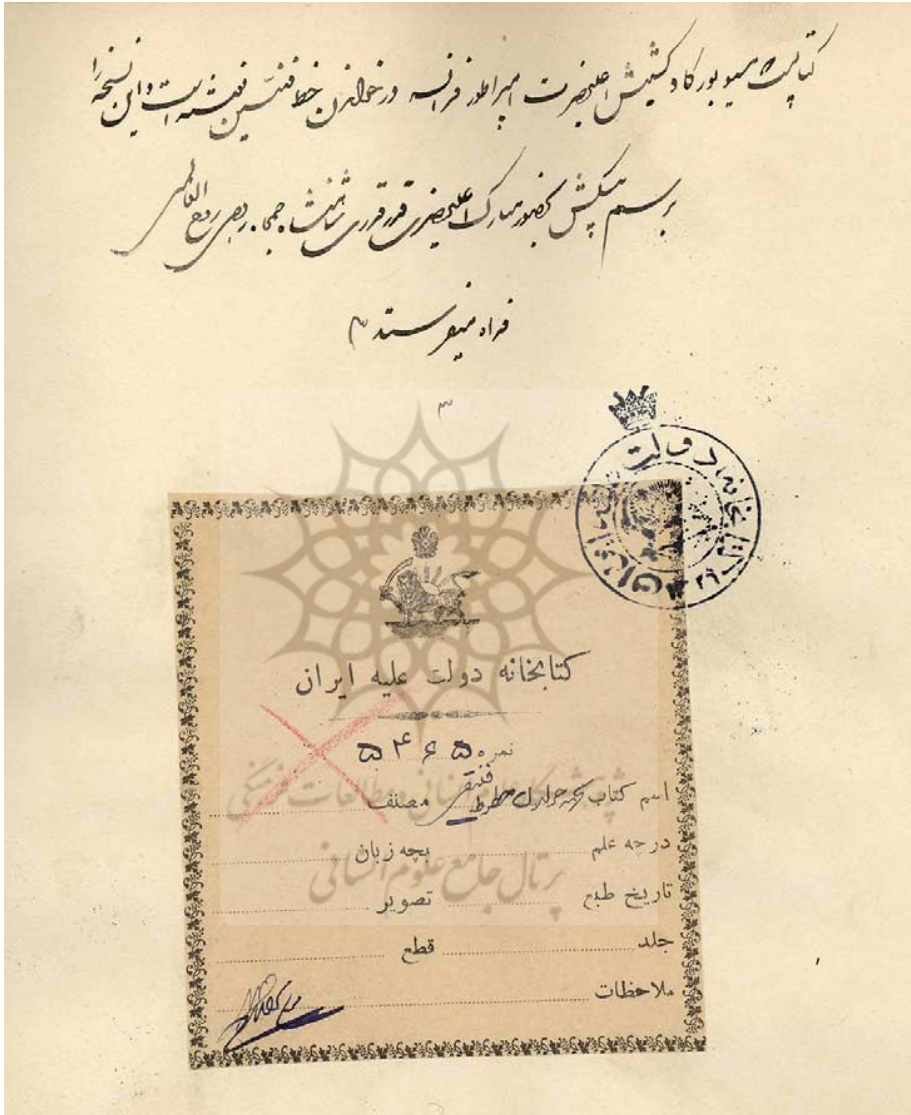 کتابیست مسیو بورکاد کشیش اعلیحضرت امپراطور فرانسه در خواندن خط فنیسین نوشته است و این نسخه را
برسم پیشکش بحضور مبارک اعلیحضرت قدر قدرت شاهنشاه
میفرستد
کتابخانه دولت علیه ایران
نمره ۵۴۶۵
اسم کتاب خطوط فنیقی مصنف
درچه علم بچه زبان
تاریخ طبع تصویر
جلد قطع
ملاحظات
پژوهشگاه علوم انسانی و مطالعات فرهنگی
پرتال جامع علوم انسانی